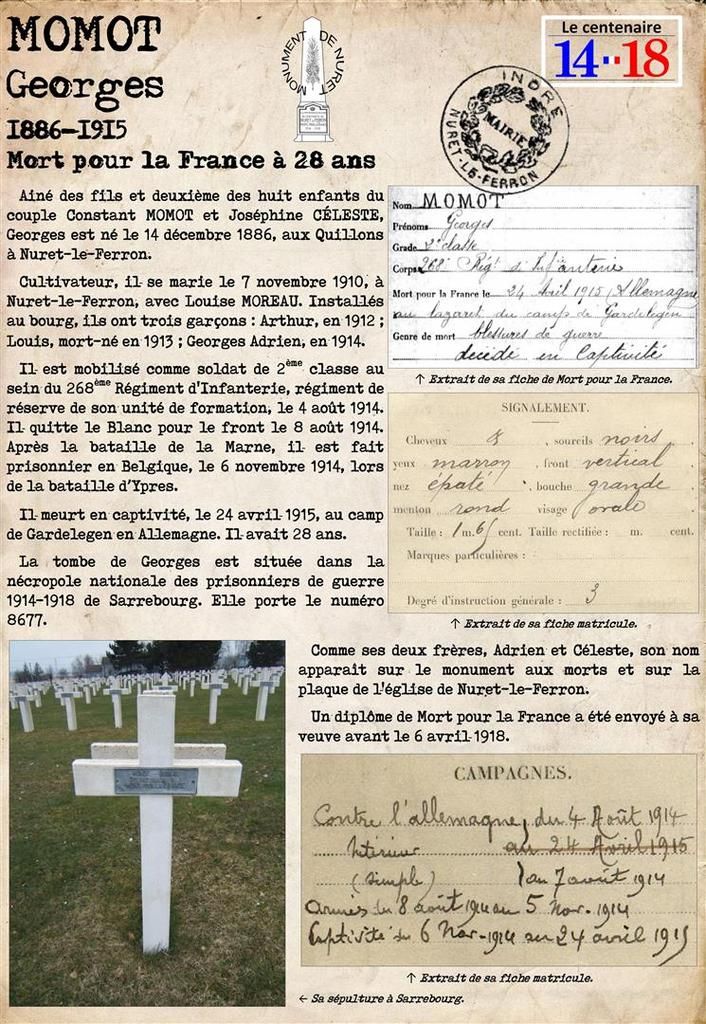 MOMOT
Georges
1886-1915
Mort pour la France à 28 ans
MONUMENT DE NURET
Le centenaire
14··18
INDRE
MAIRIE
NURET-LE-FERRON
Ainé des fils et deuxième des huit enfants du
couple Constant MOMOT et Joséphine CÉLESTE,
Georges est né le 14 décembre 1886, aux Quillons
à Nuret-le-Ferron.
Cultivateur, il se marie le 7 novembre 1910, à
Nuret-le-Ferron, avec Louise MOREAU. Installés
au bourg, ils ont trois garçons : Arthur, en 1912 ;
Louis, mort-né en 1913 ; Georges Adrien, en 1914.
Il est mobilisé comme soldat de 2ème classe au
sein du 268ème Régiment d'Infanterie, régiment de
réserve de son unité de formation, le 4 août 1914.
Il quitte le Blanc pour le front le 8 août 1914.
Après la bataille de la Marne, il est fait
prisonnier en Belgique, le 6 novembre 1914, lors
de la bataille d'Ypres.
Il meurt en captivité, le 24 avril 1915, au camp
de Gardelegen en Allemagne. Il avait 28 ans.
La tombe de Georges est située dans la
nécropole nationale des prisonniers de guerre
1914-1918 de Sarrebourg. Elle porte le numéro
8677.
Nom MOMOT
Prénoms Georges
Grade 2e classe
Corps 268e Régt d'Infanterie
Mort pour la France le 24 Avril 1915 (Allemagne
au lazaret du camp de Gardelegen
Genre de mort blessures de guerre
décédé en Captivité
↑ Extrait de sa fiche de Mort pour la France.
SIGNALEMENT.
Cheveux &, sourcils noirs
yeux marron, front vertical
nez épaté, bouche grande
menton rond visage ovale
Taille : 1 m. 61 cent. Taille rectifiée : m. cent.
Marques particulières :
Degré d'instruction générale : 3
↑ Extrait de sa fiche matricule.
Comme ses deux frères, Adrien et Céleste, son nom
apparait sur le monument aux morts et sur la
plaque de l'église de Nuret-le-Ferron.
Un diplôme de Mort pour la France a été envoyé à sa
veuve avant le 6 avril 1918.
CAMPAGNES.
Contre l'allemagne, du 4 Août 1914
au 24 Avril 1915
Intérieur
(simple) au 7 août 1914
Armées du 8 août 1914 au 5 Nov. 1914
Captivité du 6 Nov. 1914 au 24 avril 1915
↑ Extrait de sa fiche matricule.
← Sa sépulture à Sarrebourg.